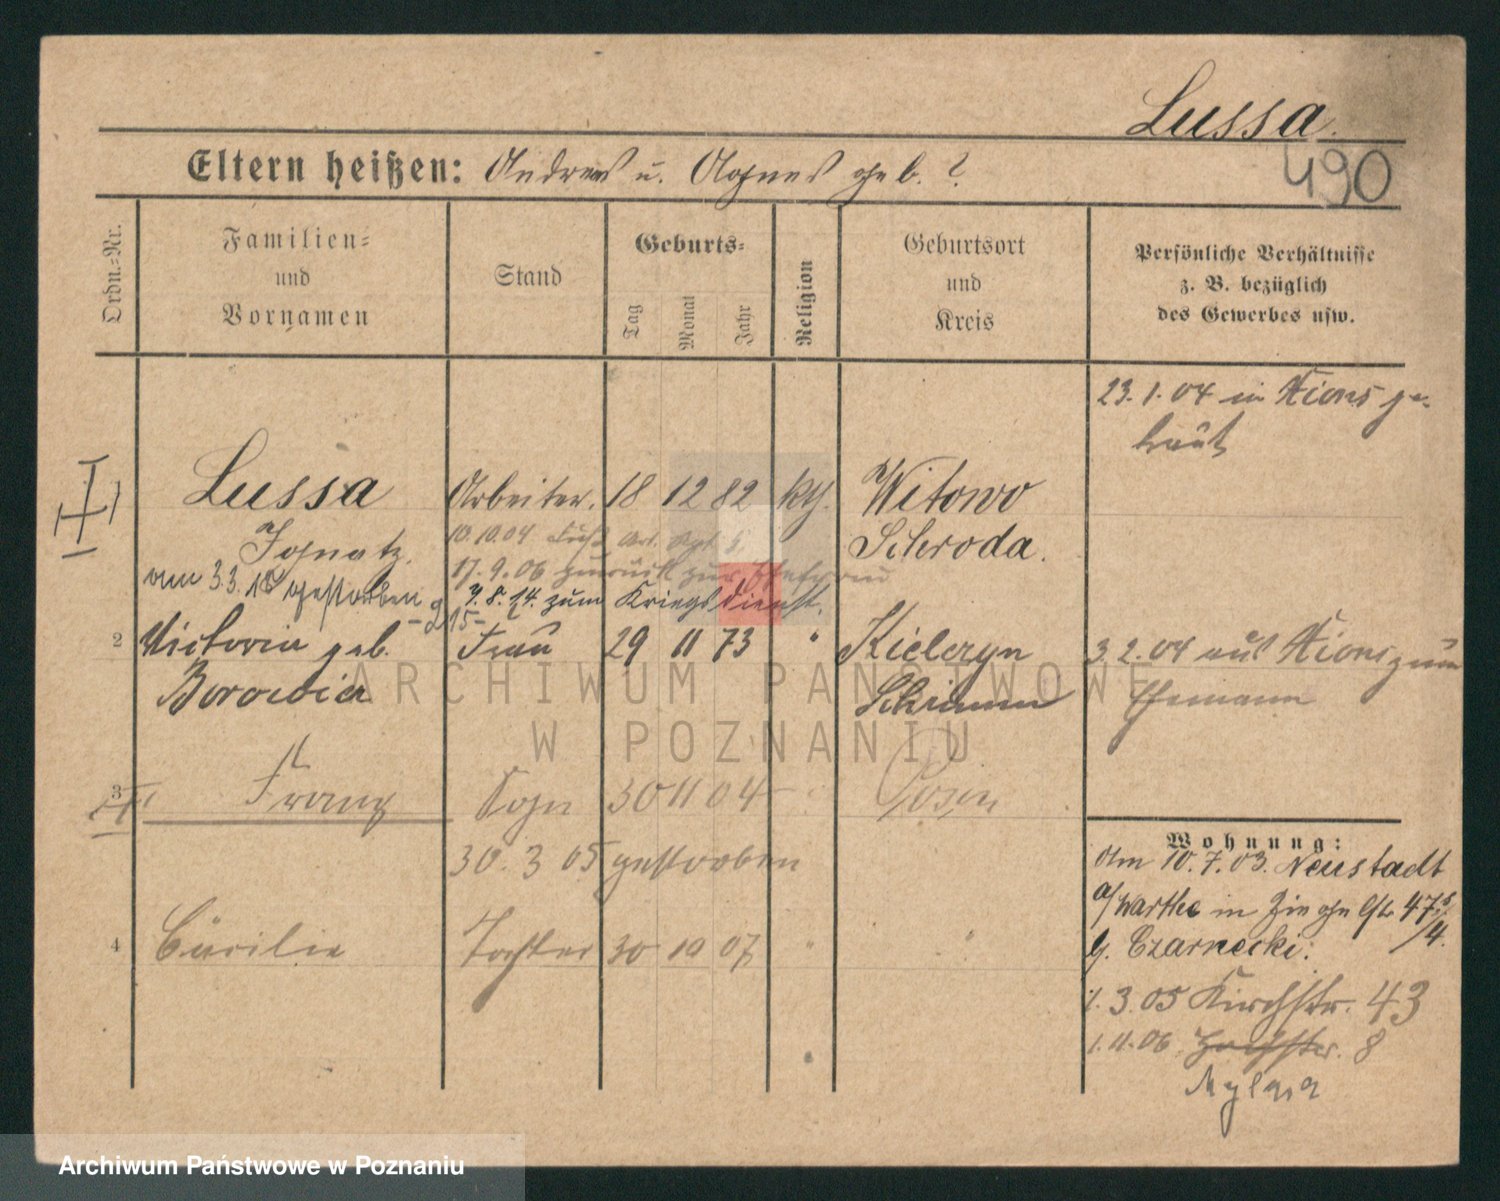 Lussa.
490
Eltern heißen: Andreas u. Agnes geb. ?
Ordn.-Nr.
Familien-
und
Vornamen
Stand
Geburts-
Tag
Monat
Jahr
Religion
Geburtsort
und
Kreis
Persönliche Verhältnisse
z. B. bezüglich
des Gewerbes usw.
23. 1. 04 in Xions ge-
traut
Lussa Arbeiter. 18 12 82 kth. Witowo
Ignatz. 10.10.04 Fuß Art. Schroda.
17. 9. 06 zurück zur Ehefrau
am 3.3. gestorben
7. 8. 14. zum Kriegsdienst.
2 Victoria geb. Frau 29 11 73 " Kielczyn 3. 2. 04 aus Xions zum
Borowicz Schrimm Ehemann
3 Franz Sohn 30 11 04 Posen
30. 3 05 gestorben
4 Cäcilie Tochter 30 10 07 " "
Wohnung:
Am 10. 7. 03. Neustadt
a/Warthe in
b. Czarnecki.
1. 3. 05 Kirchstr. 43
1. 11. 06 8
ARCHIWUM PAŃSTWOWE
W POZNANIU
Archiwum Państwowe w Poznaniu